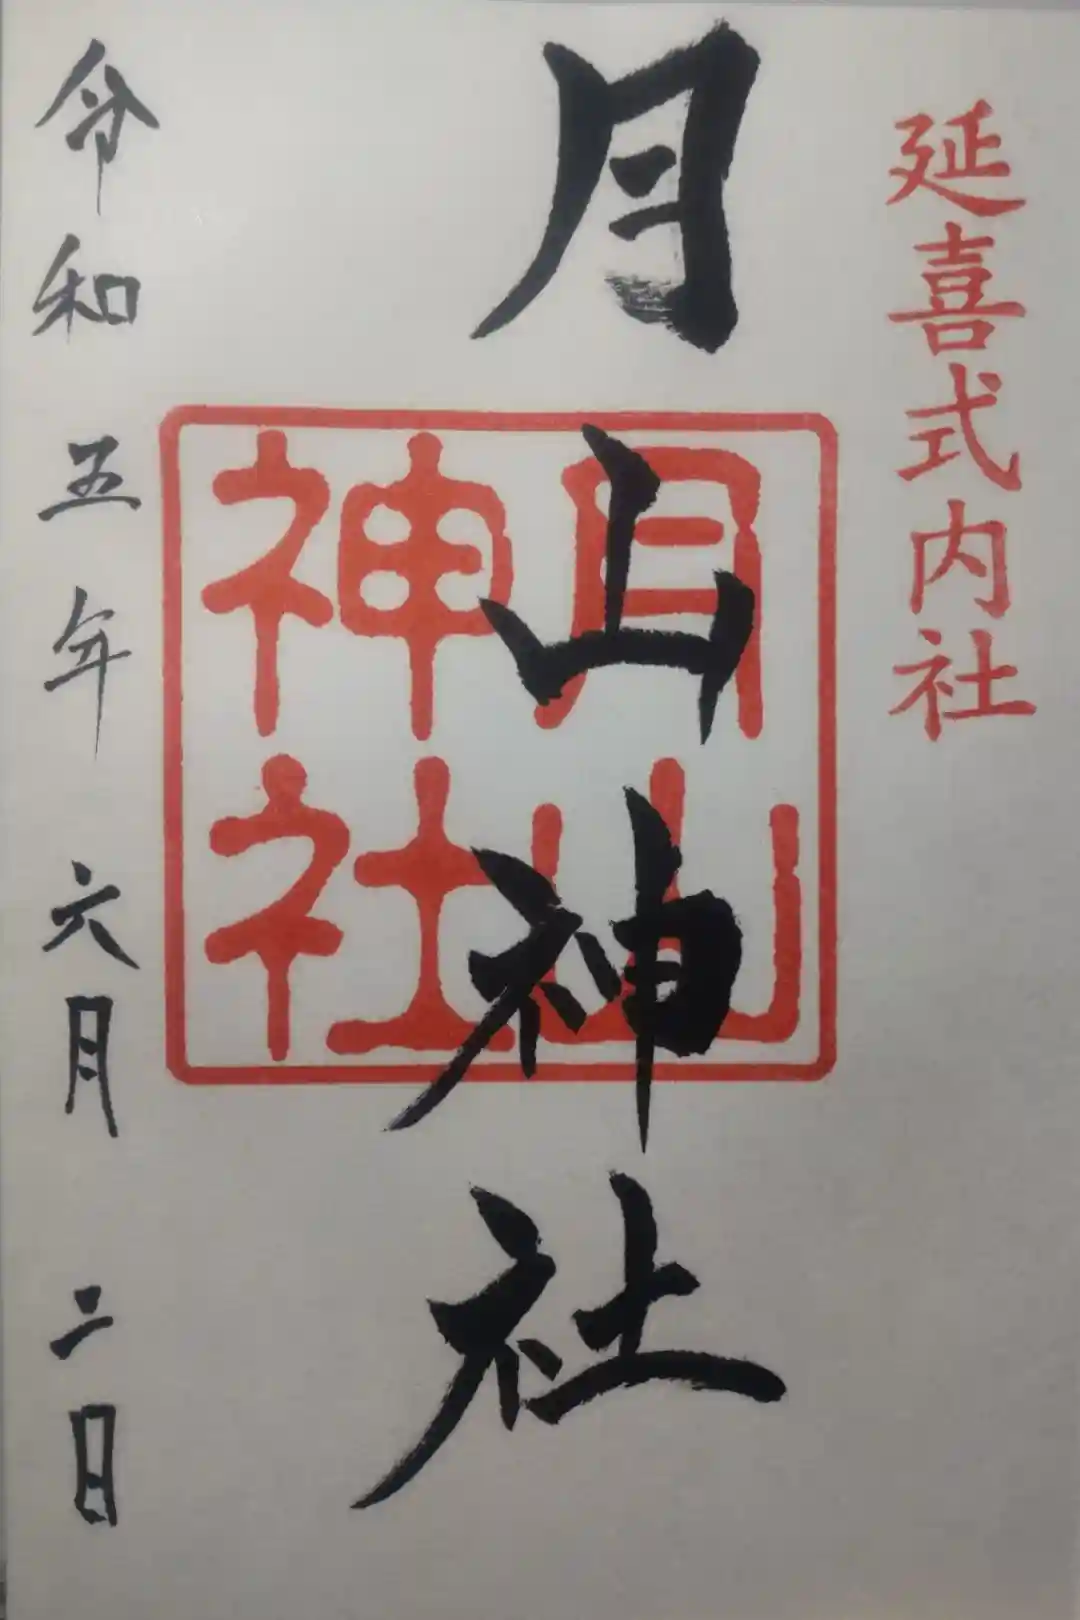 延喜式内社
月山神社
月山
神社
令和五年六月二日